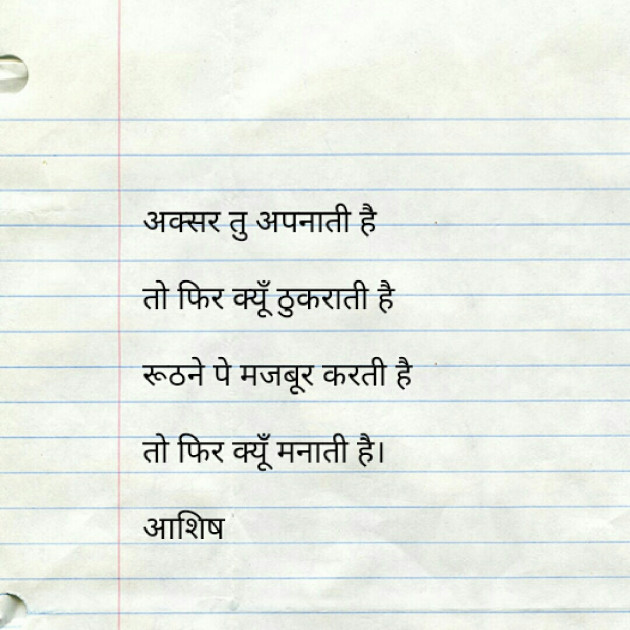 अक्सर तु अपनाती है
तो फिर क्यूँ ठुकराती है
रूठने पे मजबूर करती है
तो फिर क्यूँ मनाती है।
आशिष